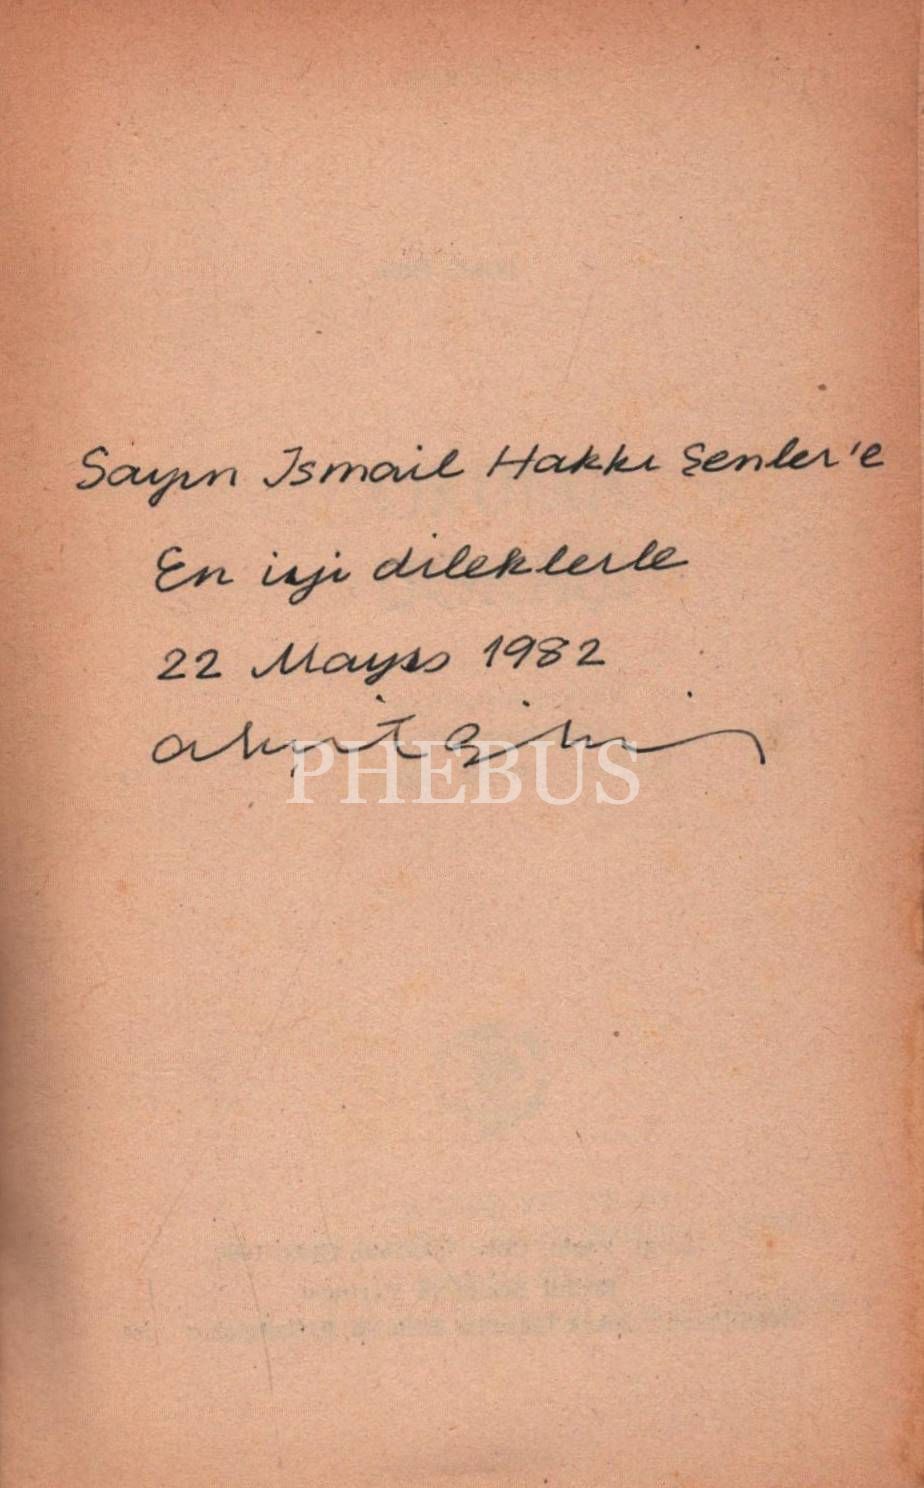 Sayın İsmail Hakkı Şenler'e
En iyi dileklerle
22 Mayıs 1982
PHEBUS